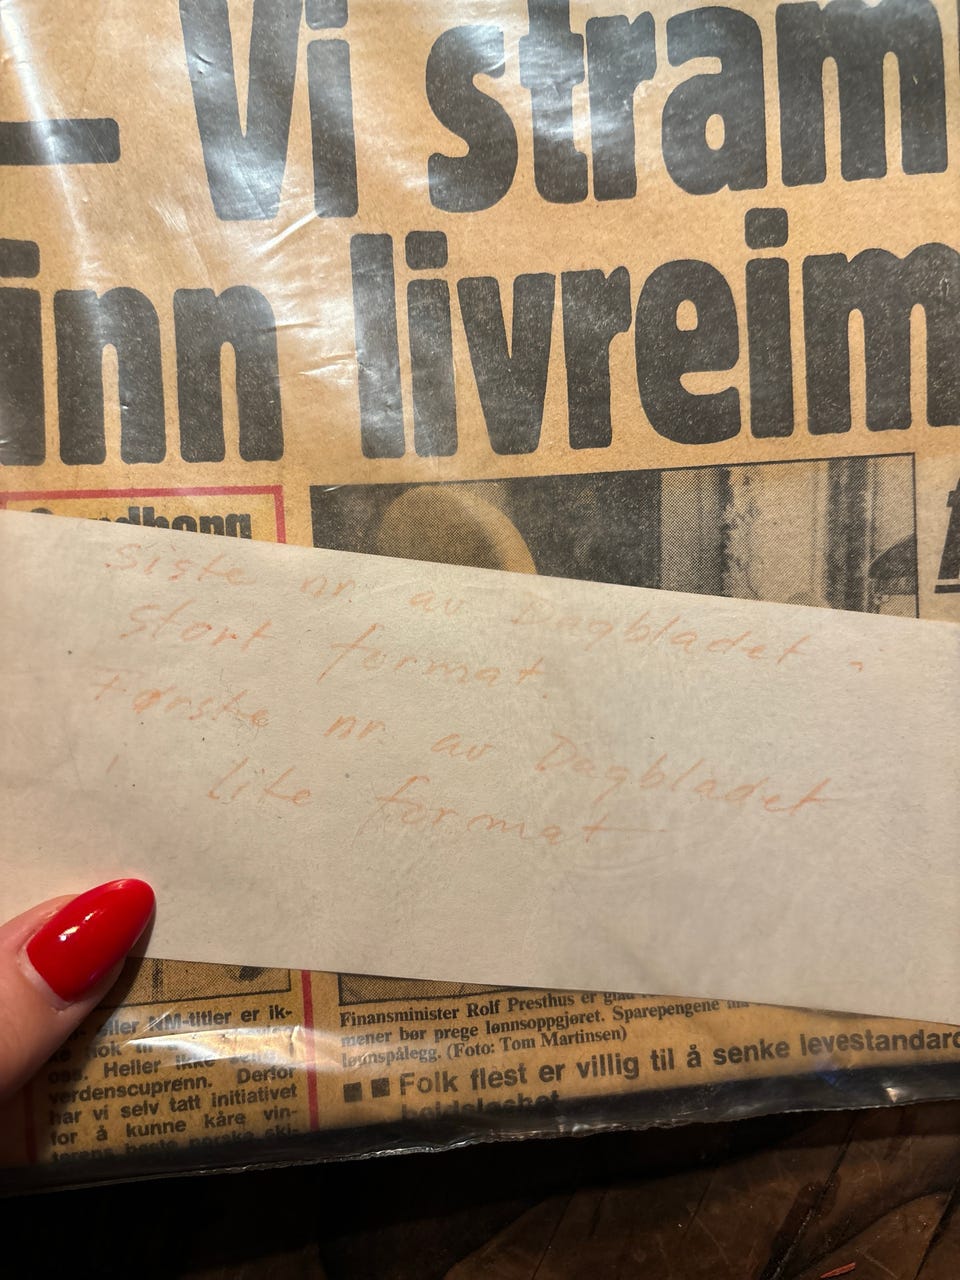 – Vi stram
inn livreim
Siste nr. av Dagbladet -
stort format.
Første nr. av Dagbladet
i lite format
eller NM-titler er ik-
ke nok til
oss. Heller ikke
verdenscuprenn. Derfor
har vi selv tatt initiativet
for å kunne kåre vin-
terens beste norske ski-
Finansminister Rolf Presthus er glad
mener bør prege lønnsoppgjøret. Sparepengene
lønnspålegg. (Foto: Tom Martinsen)
■ ■ Folk flest er villig til å senke levestandard